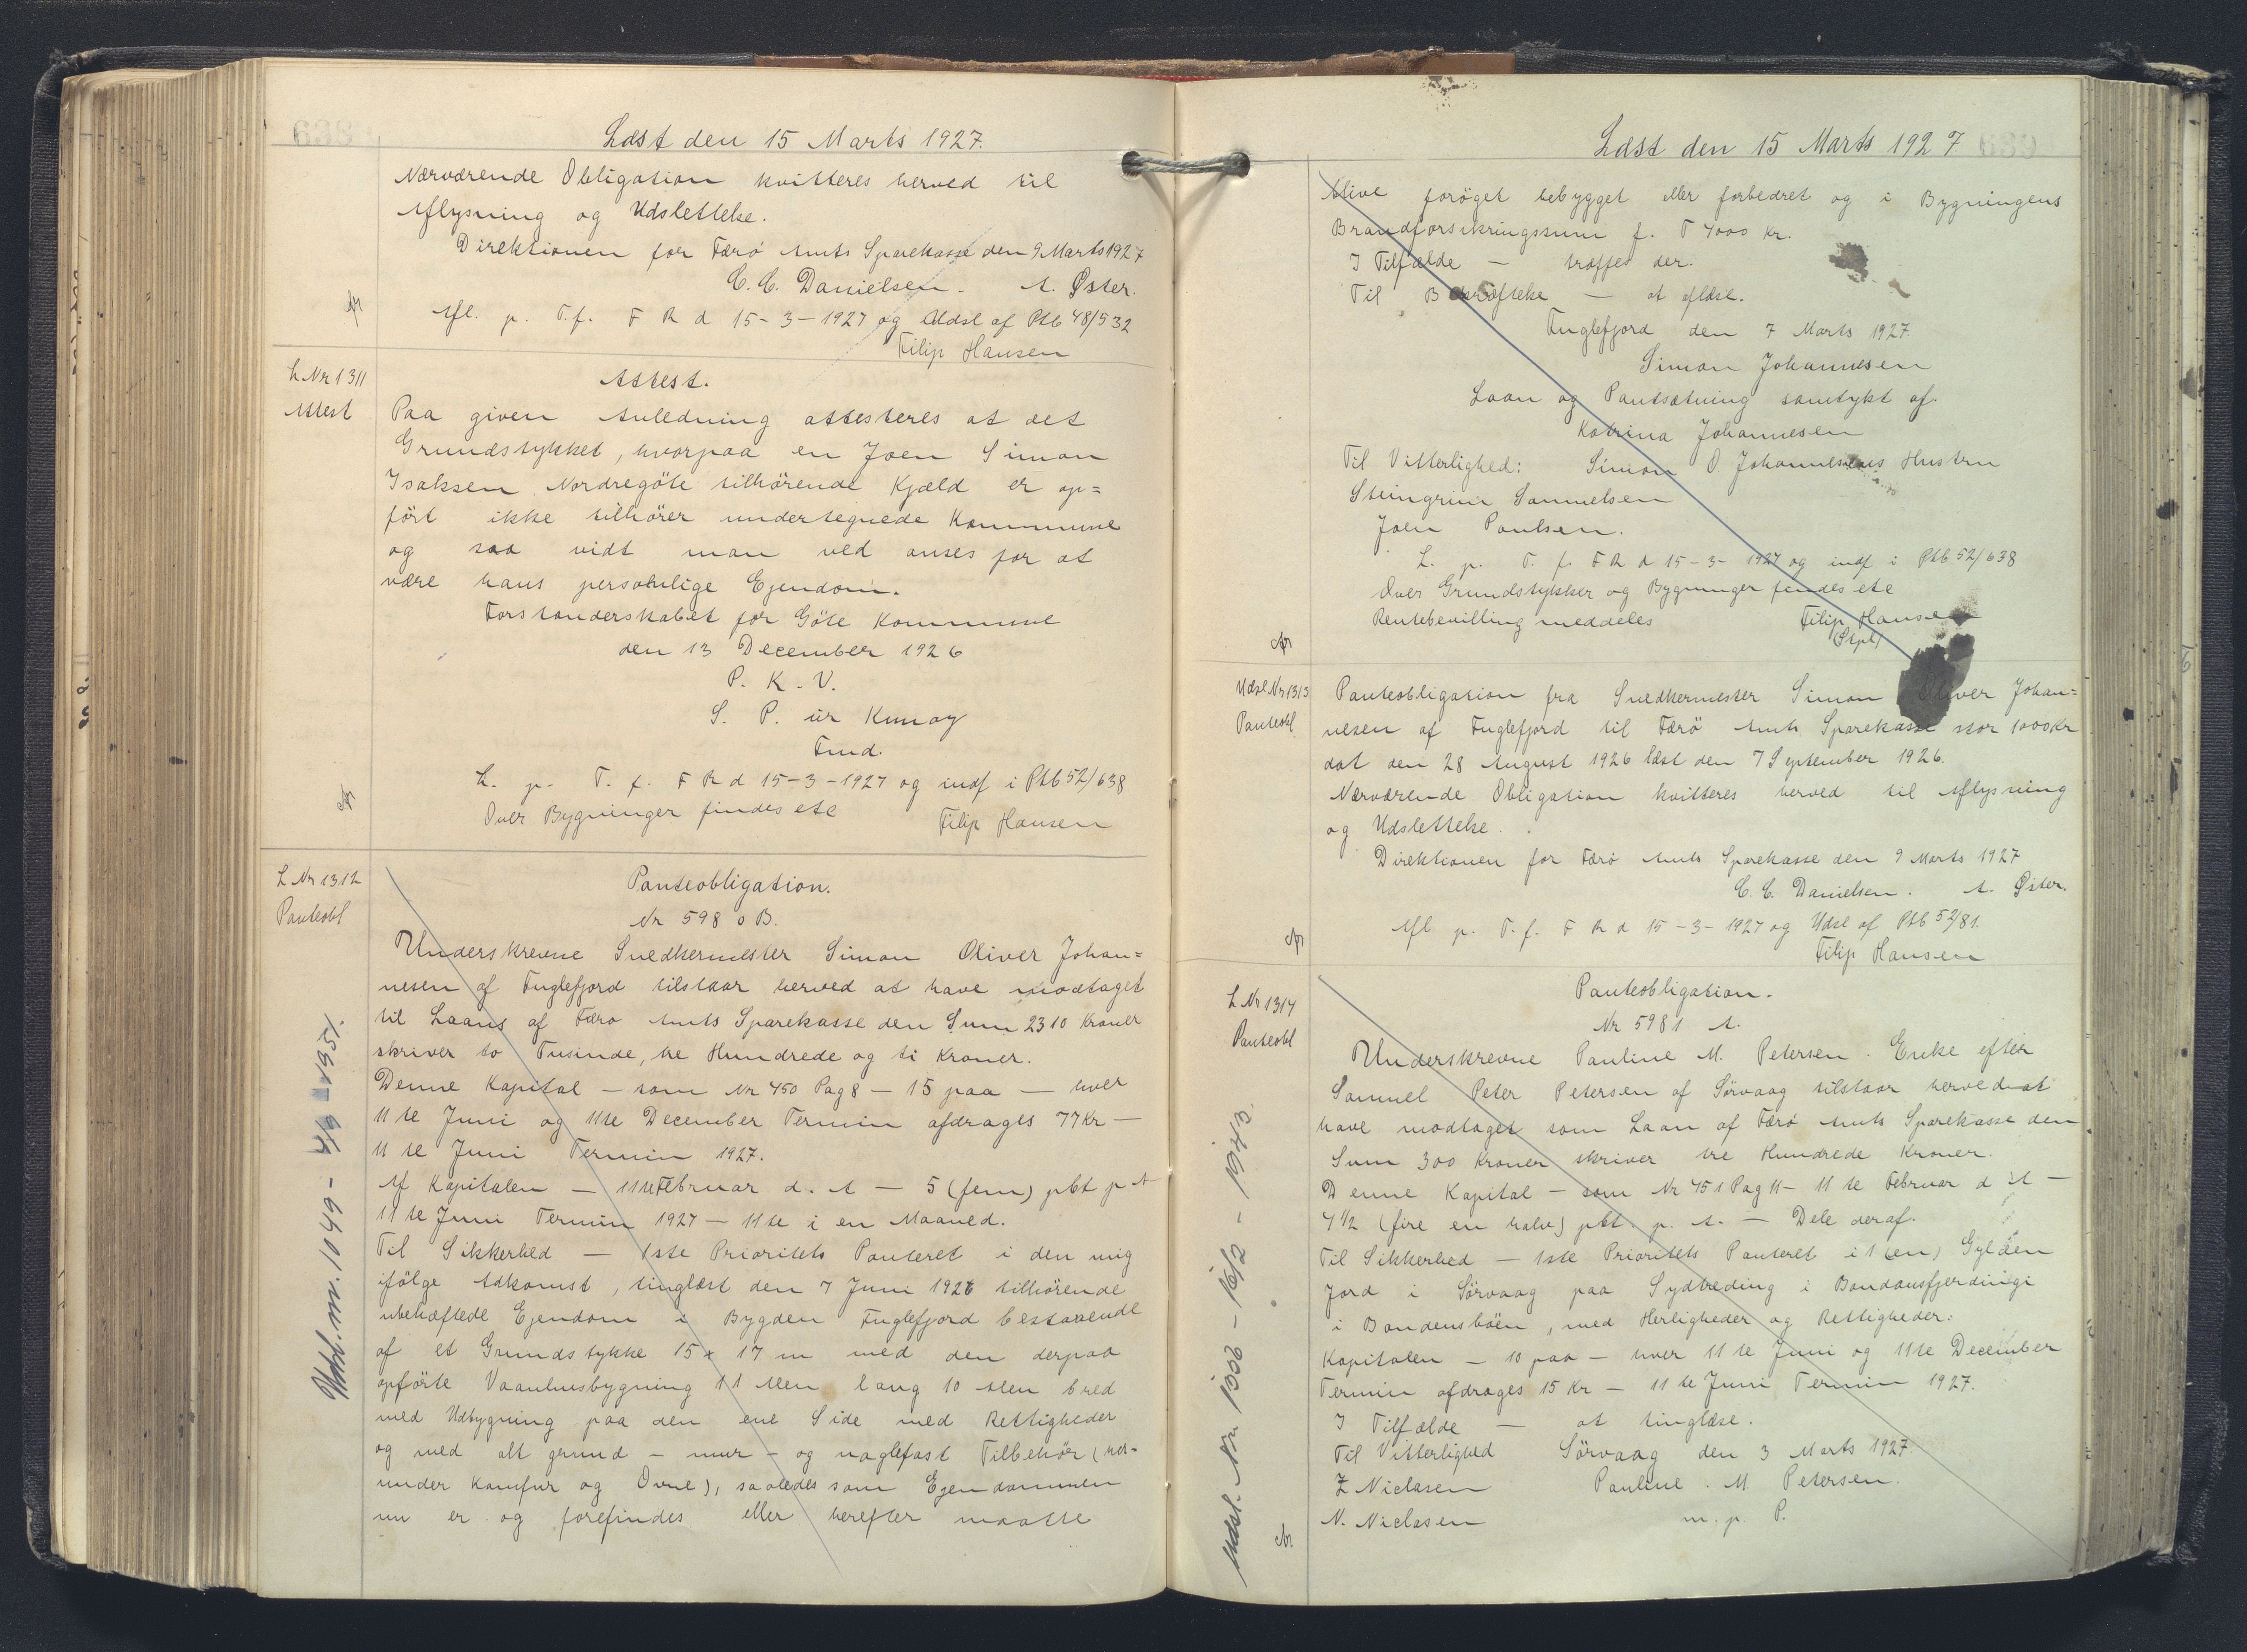 Læst den 15 Marts 1927.
Nærværende Obligation kvitteres herved til
Aflysning og Udslettelse.
Direktionen for Færö Amts Sparekasse den 9 Marts 1927
C. C. Danielsen. A. Øster.
Afl. p. T. f. F R d 15-3-1927 og Udsl af Ptb 48/532
Filip Hansen
L Nr 1311
Attest
Attest.
Paa given Anledning attesteres at det
Grundstykket, hvorpaa en Joen Simon
Isaksen Nordregöte tilhørende Kjæld er op=
fört ikke tilhører undertegnede Kommune
og saa vidt man ved anses for at
være hans personlige Ejendom.
Forstanderskabet for Göte Kommune
den 13 December 1926
P. K. V.
S. P. úr Kunoy
Fmd.
L. p. T. f. F R d 15-3-1927 og indf i Ptb 52/638
Over Bygninger findes ete
Filip Hansen
L Nr 1312
Panteobl
Panteobligation.
Nr 598 o B.
Underskrevne Snedkermester Simon Oliver Johan=
nesen af Fuglefjord tilstaar herved at have modtaget
til Laans af Færo Amts Sparekasse den Sum 2310 Kroner
skriver to Tusinde, tre Hundrede og ti Kroner.
Denne Kapital - som Nr 450 Pag 8 - 15 paa - hver
11te Juni og 11te December Termin afdrages 77 Kr -
11te Juni Termin 1927.
Af Kapitalen - 11te Februar d. A - 5 (fem) pbt p A
11te Juni Termin 1927 - 11te i en Maaned.
Til Sikkerhed - 1ste Prioritets Panteret i den mig
ifölge Adkomst, tinglæst den 7 Juni 1926 tilhörende
ubehæftede Ejendom i Bygden Fuglefjord bestaaende
af et Grundstykke 15 x 17 m med den derpaa
opförte Vaanhusbygning 11 Alen lang 10 Alen bred
med Udbygning paa den ene Side med Rettigheder
og med alt grund - mur - og naglefast Tilbehör (her=
under Komfur og Ovne), saaledes som Ejendommen
nu er og forefindes eller herefter maatte
Udsl. nr. 1049 - 4/9 - 1951.
Læst den 15 Marts 1927
blive forøget bebygget eller forbedret og i Bygningens
Brandforsikringssum f. T 4000 Kr.
I Tilfælde - træffes der.
Til Bekræftelse - at aflæse.
Fuglefjord den 7 Marts 1927.
Simon Johannesen
Laan og Pantsætning samtykt af.
Katrina Johannesen
Til Vitterlighed: Simon O. Johannesens Hustru
Steingrim Samuelsen
Joen Poulsen.
L. p. T. f. F R d 15-3-1927 og indf i Ptb 52/638
Over Grundstykker og Bygninger findes ete
Rentebevilling meddeles Filip Hansen
(Stpl)
Udsl. Nr 1313
Panteobl
Panteobligation fra Snedkermester Simon Oliver Johan=
nesen af Fuglefjord til Færö Amts Sparekasse stor 1000 Kr
dat den 28 August 1926 læst den 7 September 1926.
Nærværende Obligation kvitteres herved til Aflysning
og Udslettelse.
Direktionen for Færö Amts Sparekasse den 9 Marts 1927
C. C. Danielsen. A. Øster.
Afl p. T. f. F R d 15-3-1927 og Udsl af Ptb 52/81.
Filip Hansen
L Nr 1314
Panteobl
Panteobligation.
Nr 5981 A.
Underskrevne Pauline M. Petersen. Enke efter
Samuel Peter Petersen af Sørvaag tilstaar herved at
have modtaget som Laan af Færö Amts Sparekasse den
Sum 300 Kroner skriver tre Hundrede Kroner.
Denne Kapital - som Nr 451 Pag 11 - 11te Februar d A -
4 1/2 (fire en halv) pbt. p. A. - Dele deraf.
Til Sikkerhed - 1ste Prioritets Panteret i 1 (en) Gylden
Jord i Sörvaag paa Sydtreding i Bondansfjerdingi
i Bondensböen, med Herligheder og Rettigheder:
Kapitalen - 10 paa - hver 11te Juni og 11te December
Termin afdrages 15 Kr - 11te Juni Termin 1927.
I Tilfælde - at tinglæse.
Til Vitterlighed Sörvaag den 3 Marts 1927
Z Niclasen Pauline. M Petersen.
N. Niclasen m. p. P.
Udsl. Nr. 1338 - 16/2 - 1943.